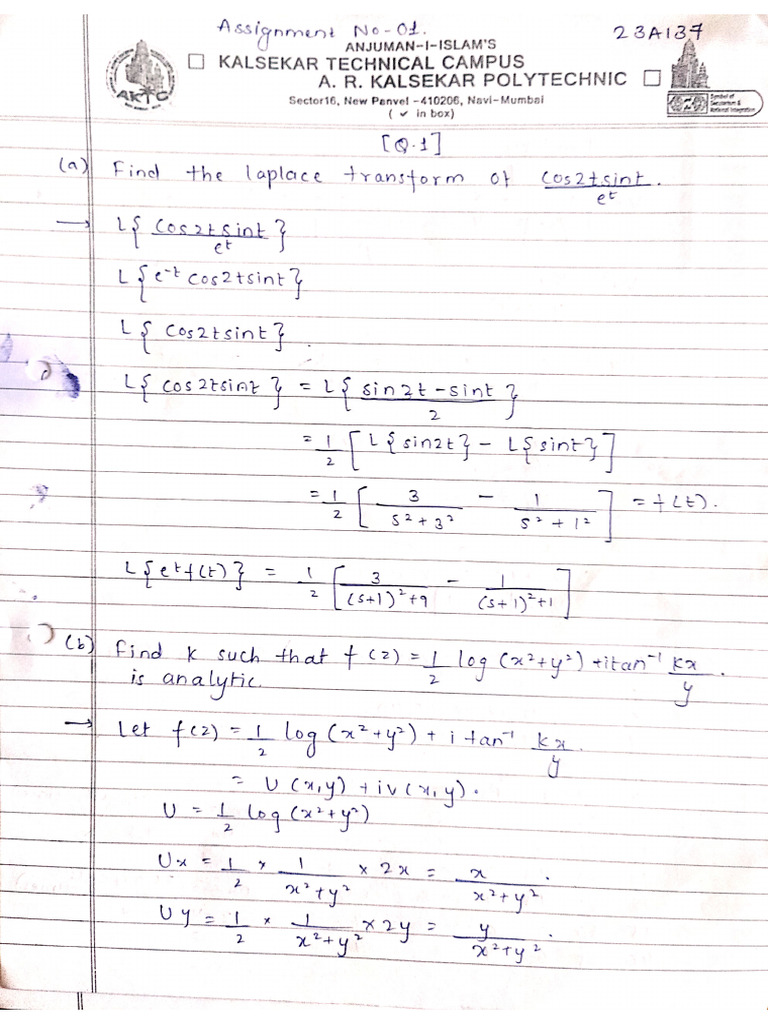 Assignment No-01.
23A137
ANJUMAN-I-ISLAM'S
☐ KALSEKAR TECHNICAL CAMPUS
A. R. KALSEKAR POLYTECHNIC ☐
Sector16, New Panvel -410206, Navi-Mumbai
( ✓ in box)
AKTC
Symbol of
Secularism &
National Integration
[Q.1]
(a) Find the laplace transform of cos2tsint/e^t.
→ L{cos2tsint/e^t}
L{e^-t cos2tsint}
L{cos2tsint}.
L{cos2tsint} = L{(sin2t - sint)/2}
= 1/2 [L{sin2t} - L{sint}]
= 1/2 [3/(s²+3²) - 1/(s²+1²)] = f(t).
L{e^t f(t)} = 1/2 [3/((s+1)²+9) - 1/((s+1)²+1)]
(b) Find k such that f(z) = 1/2 log(x²+y²) + i tan⁻¹ kx/y.
is analytic.
→ Let f(z) = 1/2 log(x²+y²) + i tan⁻¹ kx/y.
= U(x,y) + iv(x,y).
U = 1/2 log(x²+y²)
Ux = 1/2 × 1/(x²+y²) × 2x = x/(x²+y²).
Uy = 1/2 × 1/(x²+y²) × 2y = y/(x²+y²).